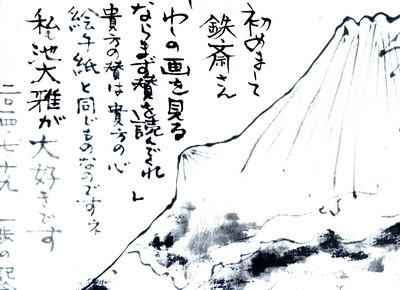 初めまして
鉄斎さん
「わしの画を見る
ならまず賛を読んでくれ」
貴方の賛は貴方の心
絵手紙と同じものなのですネ
私も池大雅が大好きです
二〇一四・七・十九 一歩の記念